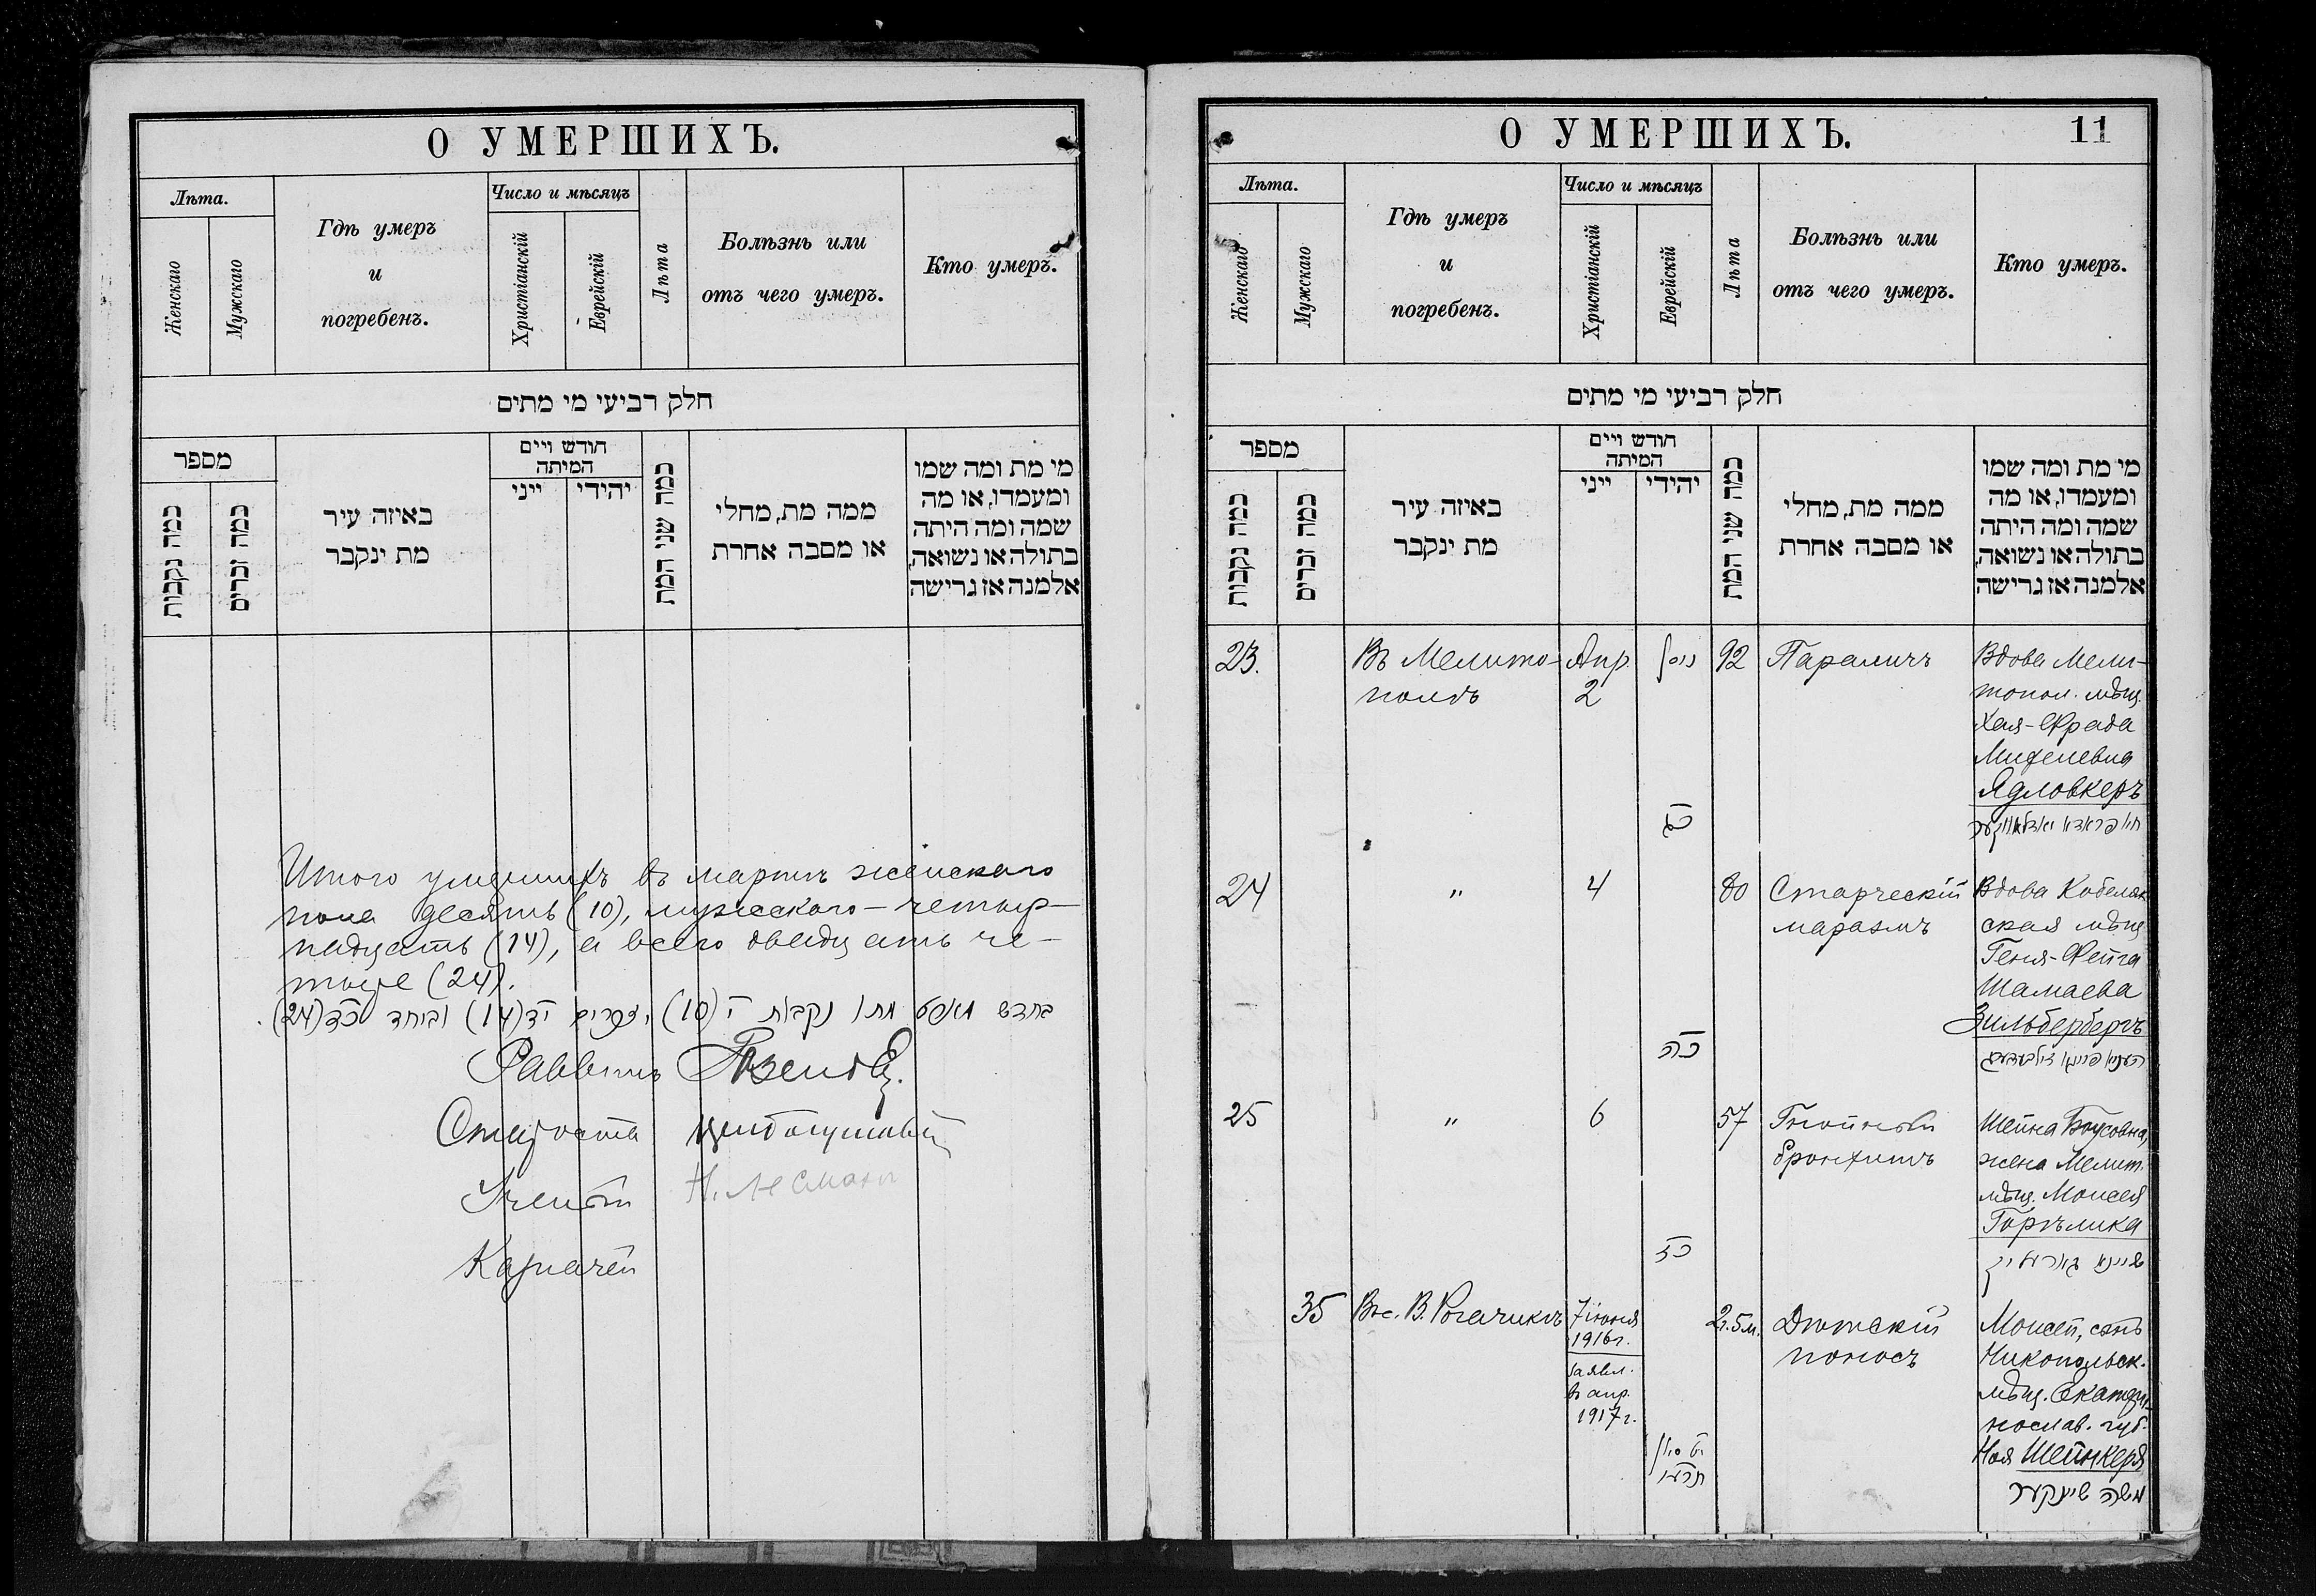 О УМЕРШИХЪ.
Лѣта.
Женскаго
Мужскаго
Гдѣ умеръ
и
погребенъ.
Число и мѣсяцъ
Христіанскій
Еврейскій
Лѣта
Болѣзнь или
отъ чего умеръ.
Кто умеръ.
חלק רביעי מי מתים
מספר
כמה נקבות
כמה זכרים
באיזה עיר
מת ינקבר
חודש ויים
המיתה
ייני
יהידי
כמה שני המת
ממה מת, מחלי
או מסבה אחרת
מי מת ומה שמו
ומעמדו, או מה
שמה ומה היתה
בתולה או נשואה,
אלמנה אז גרישה
Итого умершихъ въ мартѣ женскаго
пола десять (10), мужескаго – четыр-
надцать (14), а всего двадцать че-
тыре (24).
בחדש מארט מתו נקבות י (10) זכרים יד (14) וביחד כד (24).
Раввинъ
Староста
Ученый Н. Лесманъ
Казначей
О УМЕРШИХЪ.
11
Лѣта.
Женскаго
Мужскаго
Гдѣ умеръ
и
погребенъ.
Число и мѣсяцъ
Христіанскій
Еврейскій
Лѣта
Болѣзнь или
отъ чего умеръ.
Кто умеръ.
חלק רביעי מי מתים
מספר
כמה נקבות
כמה זכרים
באיזה עיר
מת ינקבר
חודש ויים
המיתה
ייני
יהידי
כמה שני המת
ממה מת, מחלי
או מסבה אחרת
מי מת ומה שמו
ומעמדו, או מה
שמה ומה היתה
בתולה או נשואה,
אלמנה אז גרישה
23.
Въ Мелито-
полѣ
Апр.
2
ניסן
כג
92
Параличъ
Вдова Мели-
топол. мѣщ.
Хая-Фрада
Михелевна
Ядловкеръ
חיה פראדא יאדלאווקער
24
"
4
כה
80
Старческій
маразмъ
Вдова Кобеляк
ская мѣщ.
Геня-Фейга
Шамаева
Зильбербергъ
העניא פייגא זילבערבערג
25
"
6
כז
57
Гнойный
бронхитъ
Шейна Боусовна,
жена Мелит.
мѣщ. Моисея
Горѣлика
שיינא גארעליק
35
Въ с. В. Рогачикѣ
7 іюня
1916 г.
заявл.
въ апр.
1917 г.
יט סיון
תרעו
2 г. 5 м.
Дѣтскій
поносъ
Моисей, сынъ
Никопольск.
мѣщ. Екатери-
нослав. губ.
Ноя Шейнкера
משה שיינקער